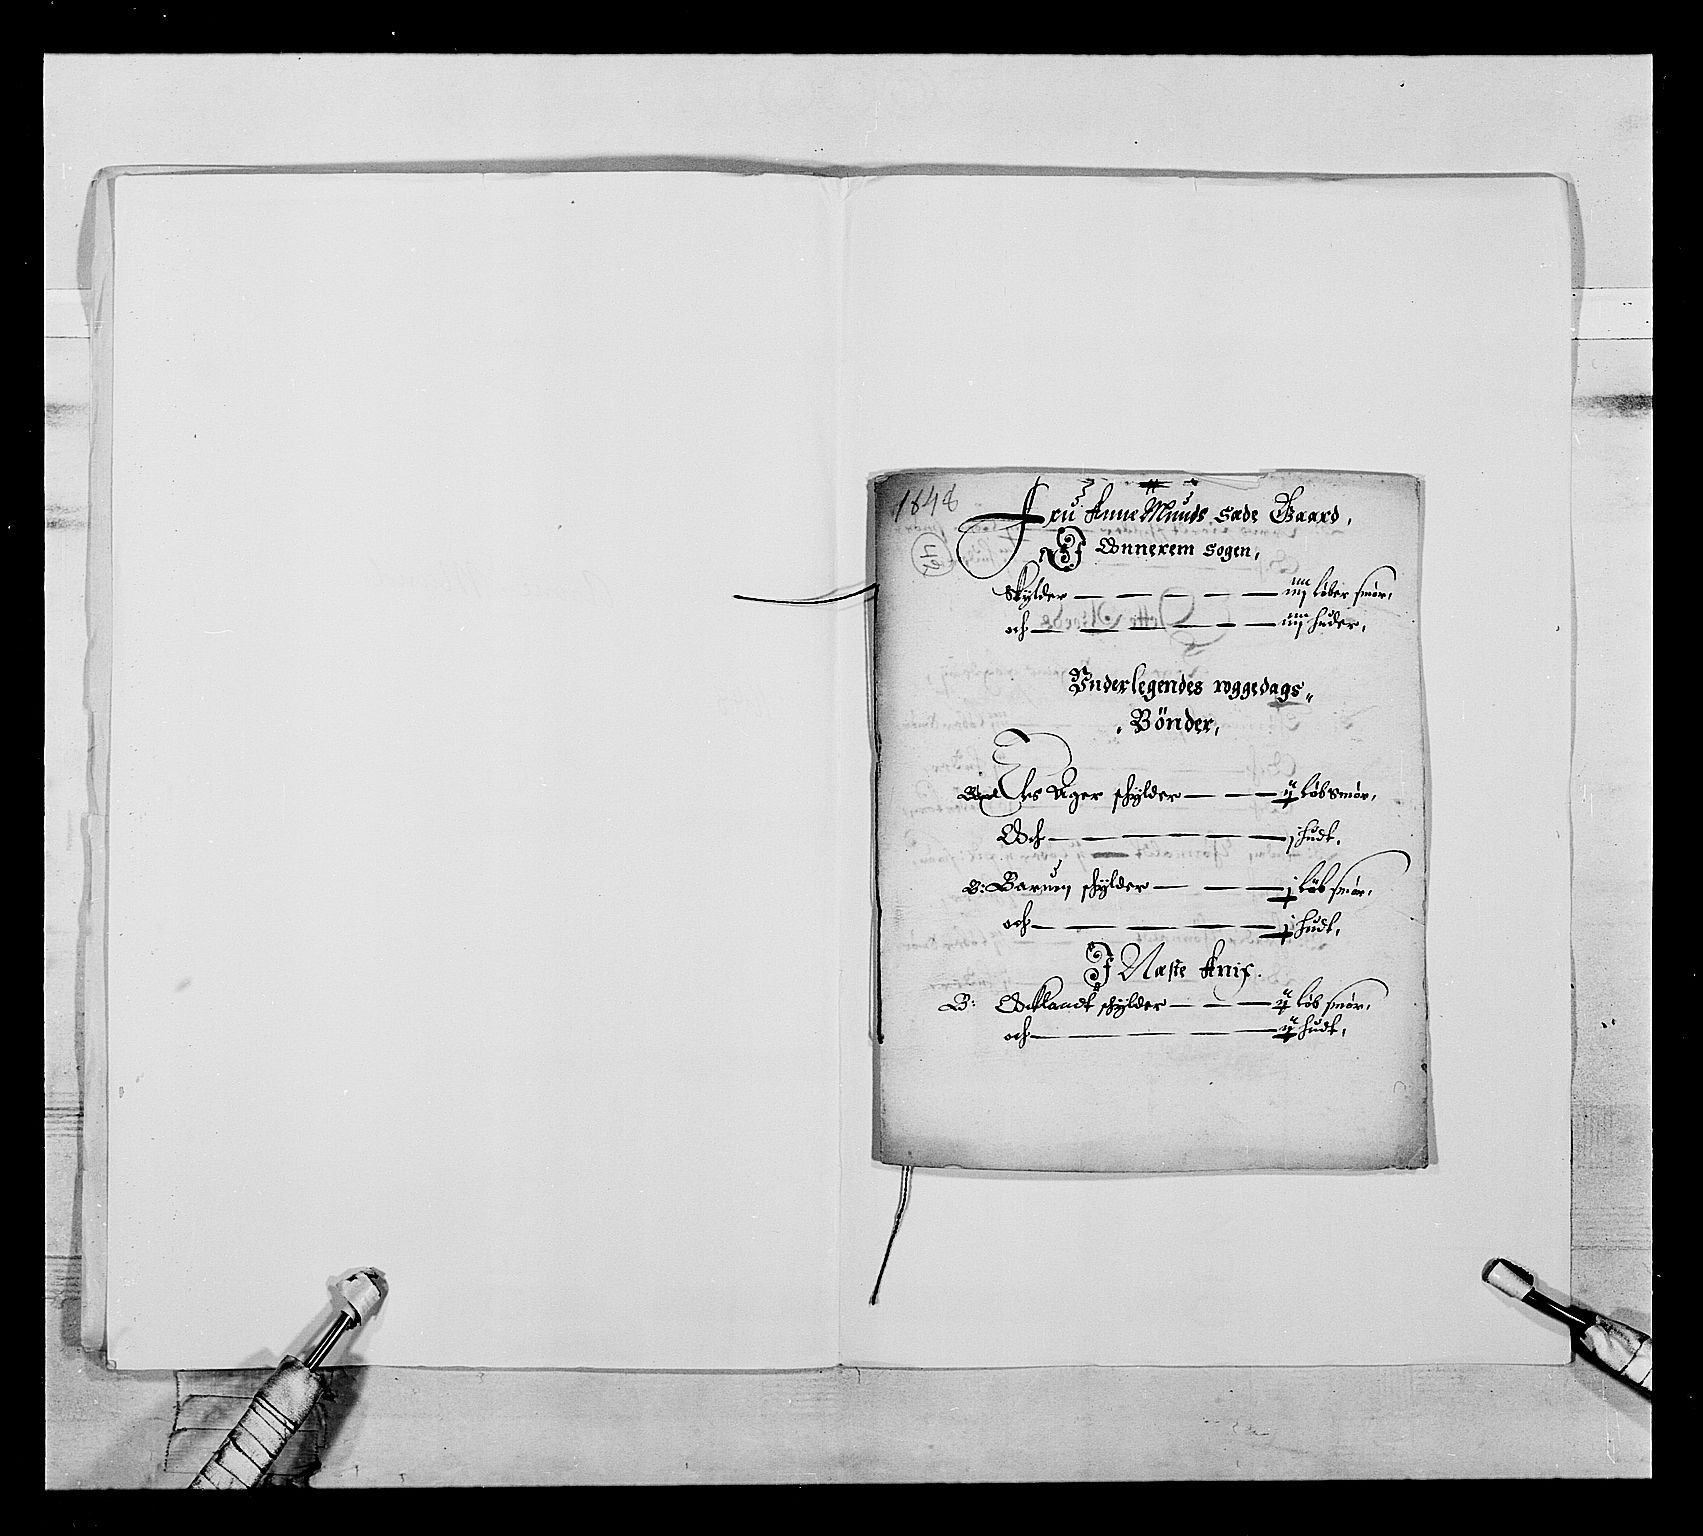 1848
42
Fru Anne Munds Sæde Gaard,
J Onnerem Sogen,
Skylder — — — — — iiij løber smør,
och — — — — — — iiij huder,
Vnderlegendes vggedags
Bönder,
Ager skylder — — — ij løb smør,
Och — — — — — — j hudt,
B: Barum skylder — — — j løb smør,
och — — — — — — j hudt,
J Næste Knip.
B: skylder — — — ij løb smør,
och — — — — — ij hudt,